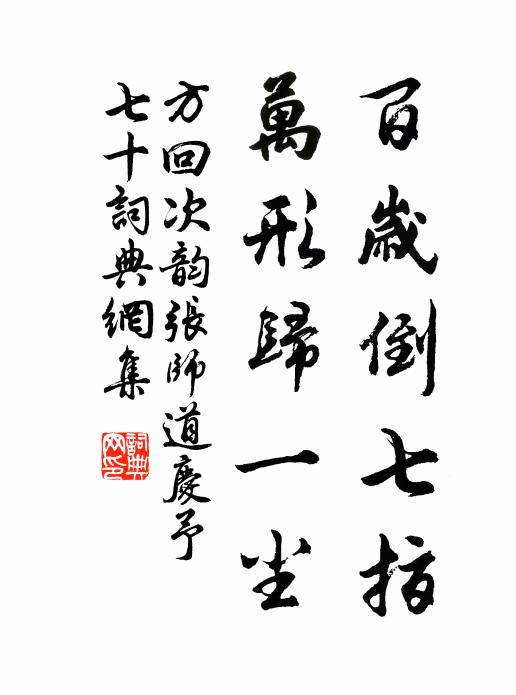 百歲倒七指
萬形歸一坐
方回次韵張師道慶予
七十詞典網集
詞典网印